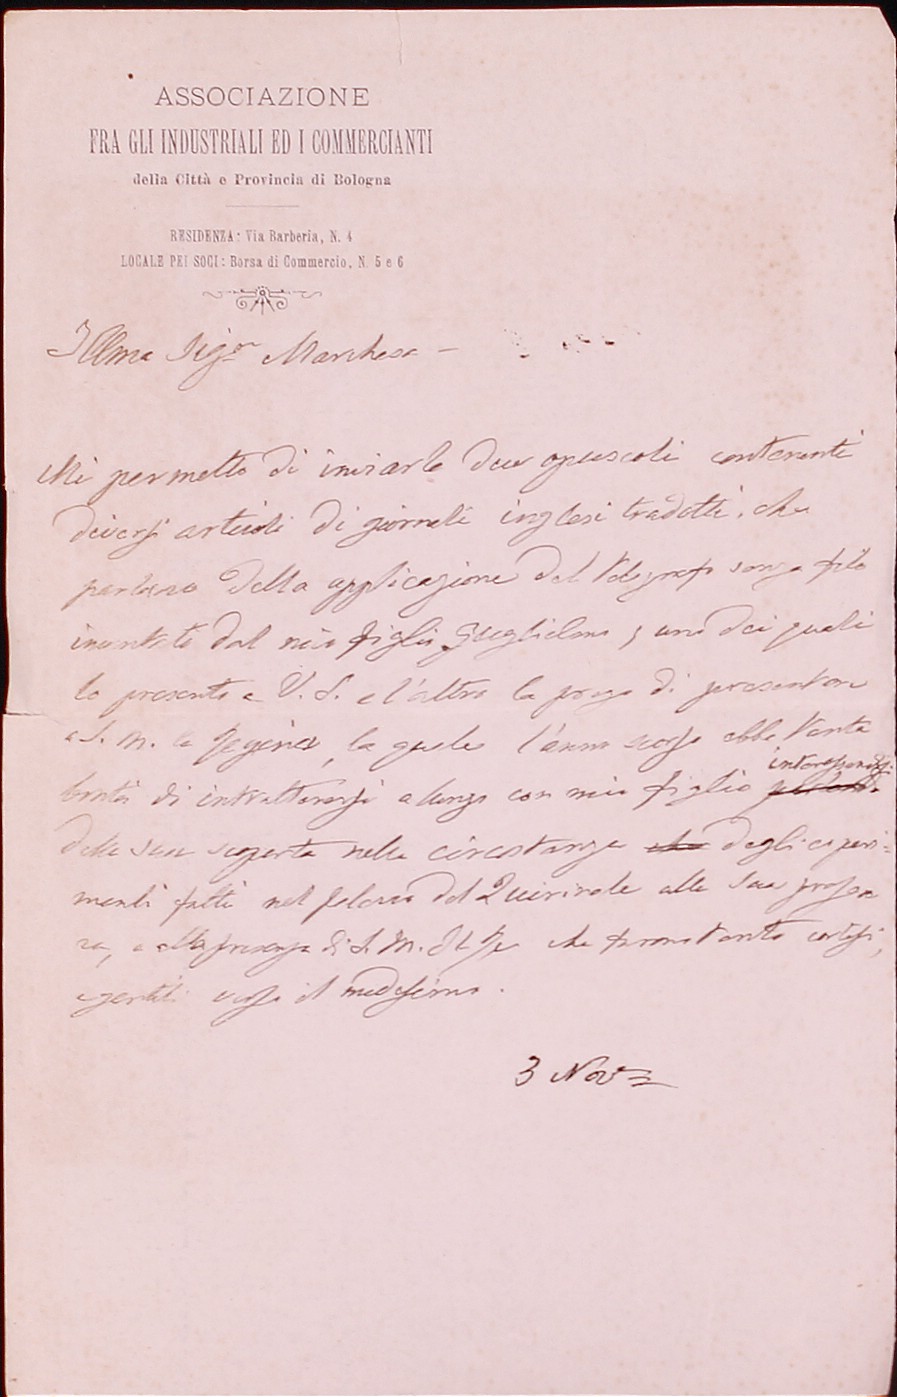 ASSOCIAZIONE
FRA GLI INDUSTRIALI ED I COMMERCIANTI
della Città e Provincia di Bologna
RESIDENZA: Via Barberia, N. 4
LOCALE PEI SOCI: Borsa di Commercio, N. 5 e 6
Illma Sigra Marchesa -
Mi permetto di inviarle due opuscoli contenenti
diversi articoli di giornali inglesi tradotti, che
parlano della applicazione del Telegrafo senza filo
inventato dal mio figlio Guglielmo, uno dei quali
lo presento a V. S. e l'altro la prego di presentare
a S. M. la Regina, la quale l'anno scorso ebbe tanta
bontà di intrattenersi a lungo con mio figlio interessandosi
della sua scoperta nella circostanza che degli esperi=
menti fatti nel palazzo del Quirinale alla sua presen
za, e alla presenza di S. M. Il Re che furono tanto cortesi,
e gentili verso il medesimo.
3 Nov